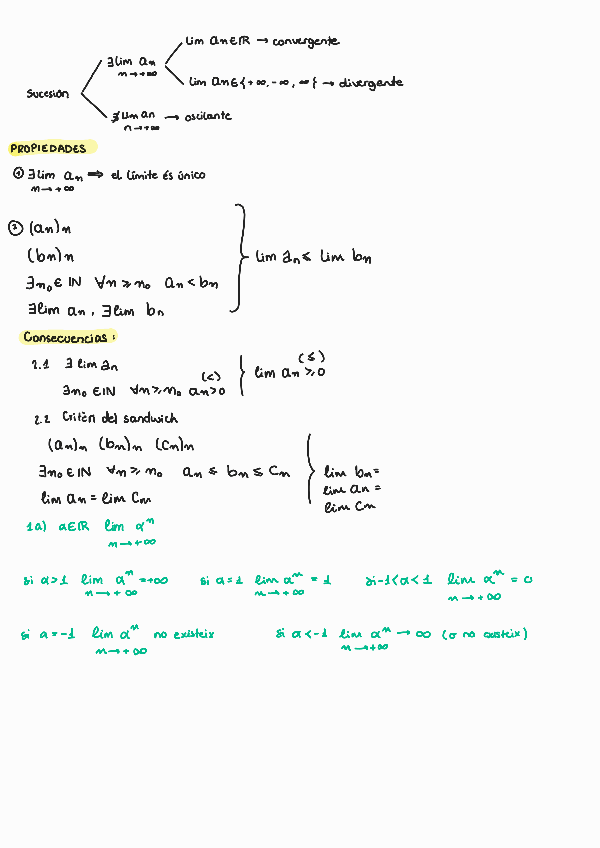 Sucesión
∃lim an
n→+∞
lim an∈ℝ → convergente
lim an∈{+∞, -∞, ∞} → divergente
∄lim an → oscilante
n→+∞
PROPIEDADES
① ∃lim an ⟹ el límite és único
n→+∞
② (an)n
(bn)n
∃n₀∈ℕ ∀n≥n₀ an<bn
∃lim an, ∃lim bn
lim an ≤ lim bn
Consecuencias:
2.1 ∃ lim an
∃n₀∈ℕ ∀n≥n₀ an>0 (<)
lim an ≥0 (≤)
2.2 Critèri del sandwich
(an)n (bn)n (cn)n
∃n₀∈ℕ ∀n≥n₀ an ≤ bn ≤ cn
lim an = lim cn
lim bn=
lim an =
lim cn
1a) a∈ℝ lim aⁿ
n→+∞
si a>1 lim aⁿ=+∞ si a=1 lim aⁿ = 1 si-1<a<1 lim aⁿ = 0
n→+∞ n→+∞ n→+∞
si a=-1 lim aⁿ no existeix si a<-1 lim aⁿ → ∞ (o no existeix)
n→+∞ n→+∞